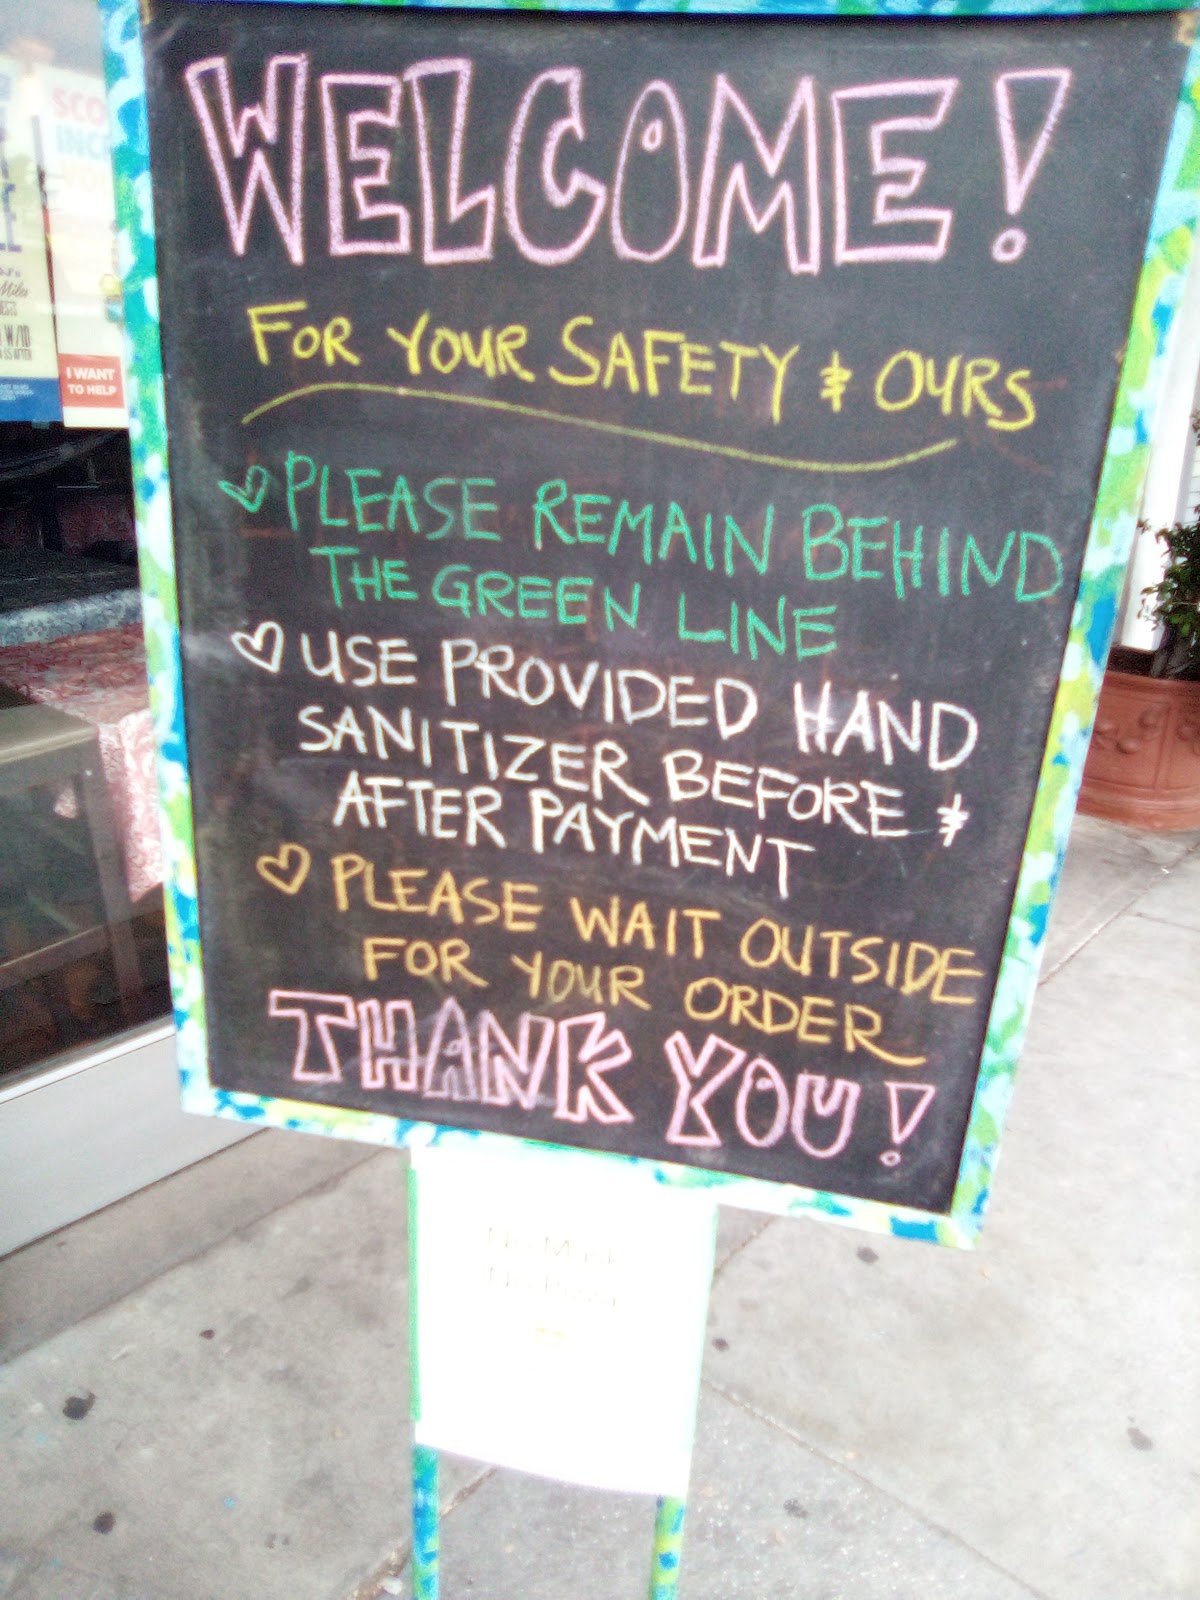 WELCOME!
FOR YOUR SAFETY & OURS
PLEASE REMAIN BEHIND
THE GREEN LINE
USE PROVIDED HAND
SANITIZER BEFORE &
AFTER PAYMENT
PLEASE WAIT OUTSIDE
FOR YOUR ORDER
THANK YOU!
I WANT
TO HELP
No Mask